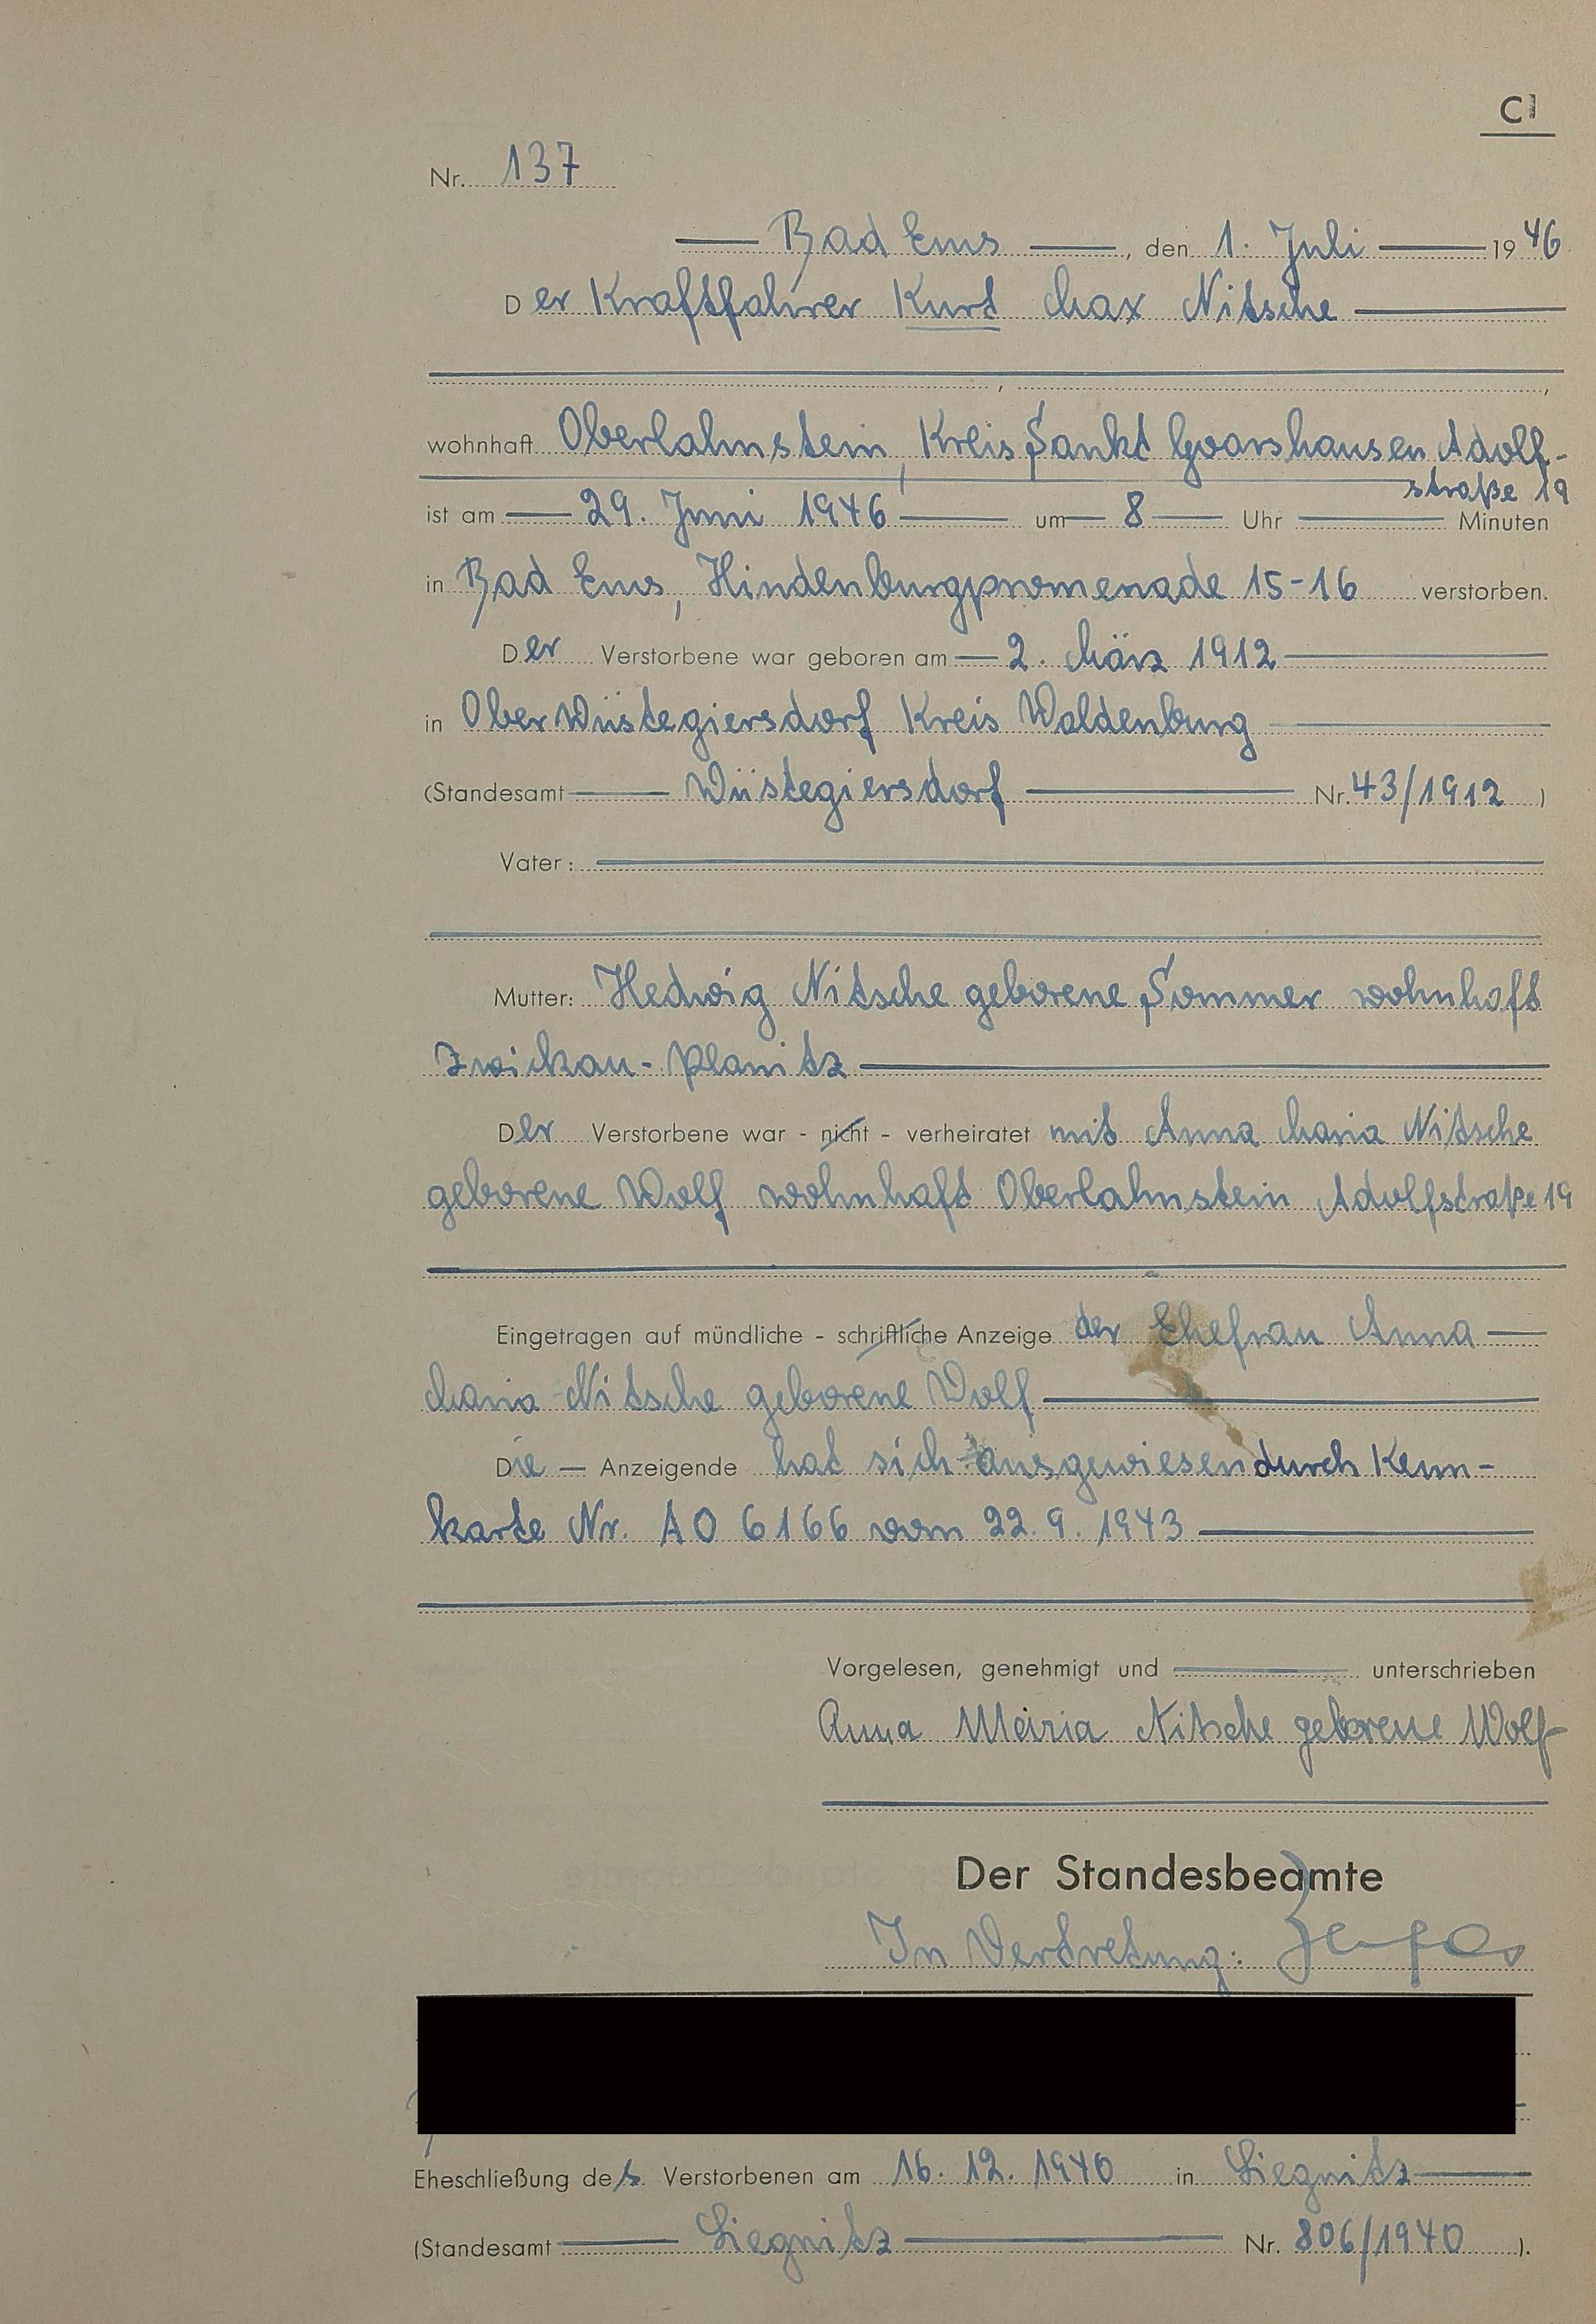 C
Nr. 137
Bad Ems, den 1. Juli 1946
Der Kraftfahrer Kurt Max Nitsche
wohnhaft Oberlahnstein, Kreis Sankt Goarshausen, Adolf-
straße 19
ist am 29. Juni 1946 um 8 Uhr Minuten
in Bad Ems, Hindenburgpromenade 15-16 verstorben.
Der Verstorbene war geboren am 2. März 1912
in Oberwüstegiersdorf Kreis Waldenburg
(Standesamt Wüstegiersdorf Nr. 43/1912)
Vater:
Mutter: Hedwig Nitsche geborene Sommer wohnhaft
Zwickau-Planitz
Der Verstorbene war - nicht - verheiratet mit Anna Maria Nitsche
geborene Wolf wohnhaft Oberlahnstein Adolfstraße 19
Eingetragen auf mündliche - schriftliche Anzeige der Ehefrau Anna
Maria Nitsche geborene Wolf
Die Anzeigende hat sich ausgewiesen durch Kenn-
karte Nr. A0 6166 vom 22.9.1943
Vorgelesen, genehmigt und unterschrieben
Anna Maria Nitsche geborene Wolf
Der Standesbeamte
In Vertretung:
Eheschließung des Verstorbenen am 16.12.1940 in Liegnitz
(Standesamt Liegnitz Nr. 806/1940).